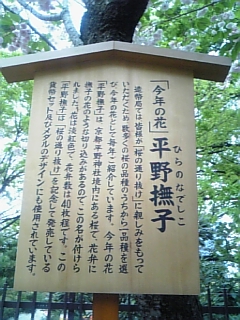 「今年の花」平野撫子
ひらのなでしこ
造幣局では皆様が「桜の通り抜け」に親しみをもって
いただくため、数多くの桜の品種のうちから一品種を選
び「今年の花」として毎年ご紹介しています。今年の花
「平野撫子」は、京都平野神社境内にある桜で、花弁に
撫子の花のような切り込みがあるのでこの名が付けら
れました。花は淡紅色で、花弁数は40枚程です。この
「平野撫子」は、「桜の通り抜け」を記念して発売している
貨幣セット及びメダルのデザインにも使用されています。